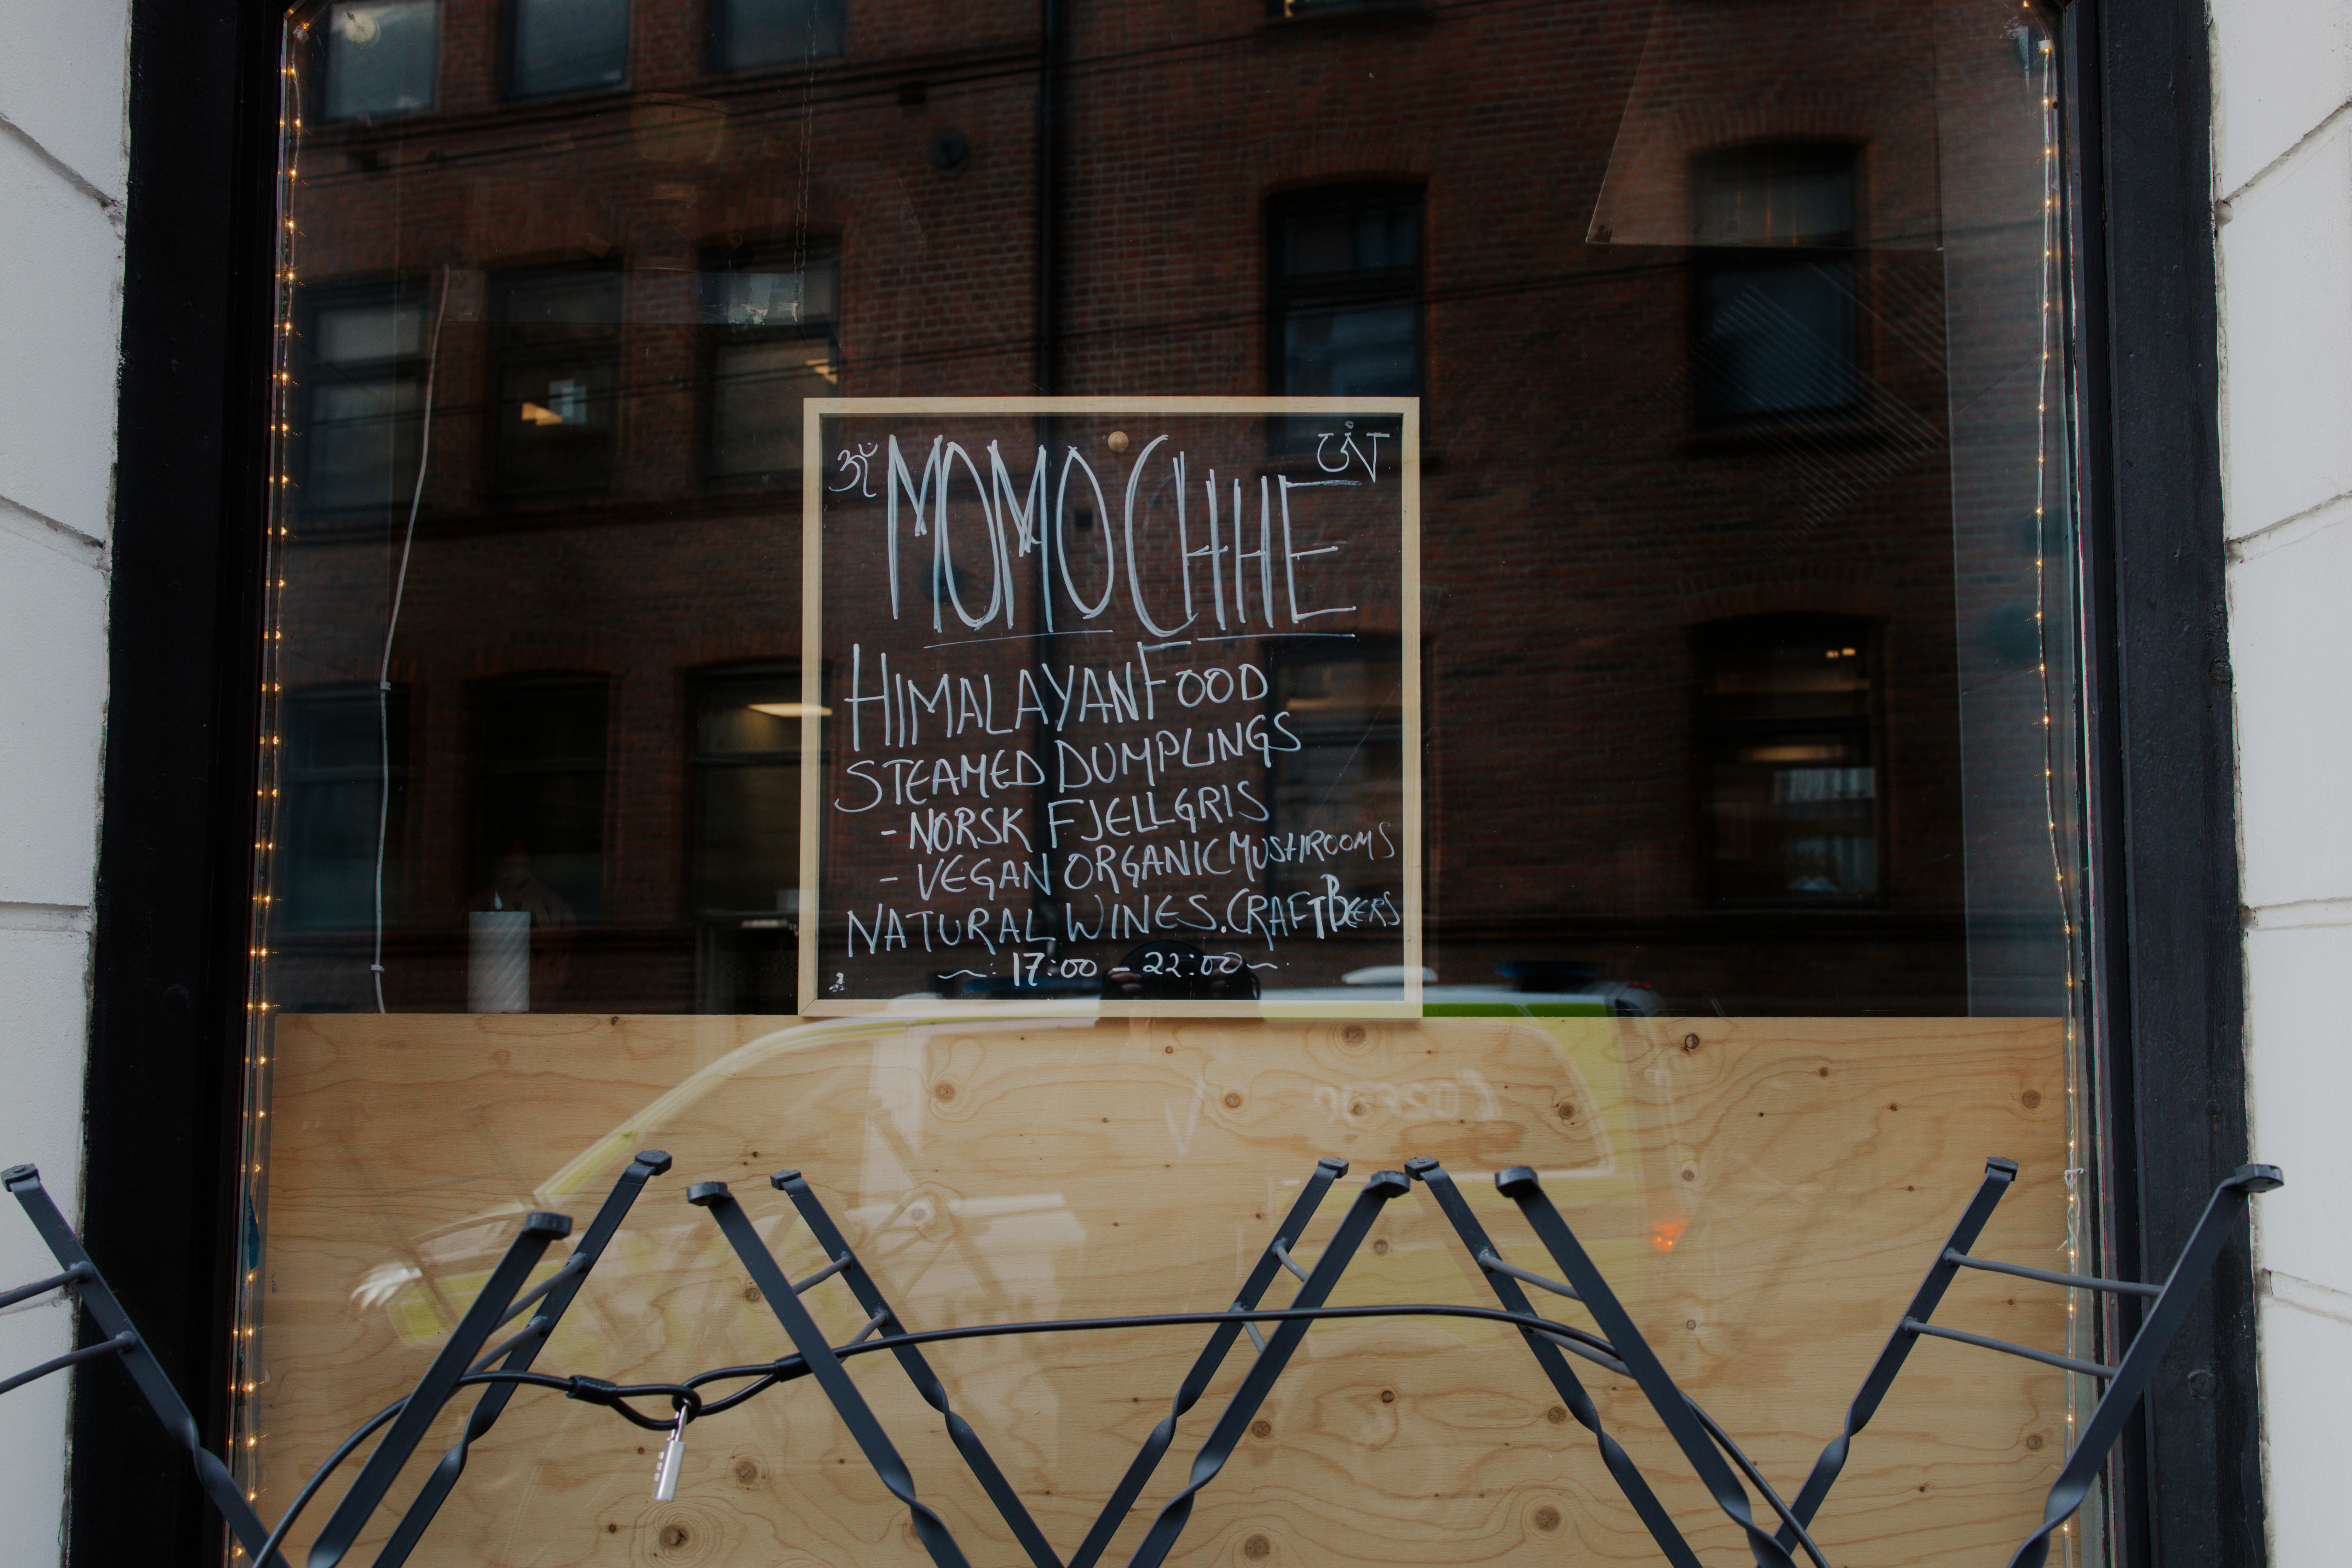 ॐ
MOMO CHHE
HIMALAYAN FOOD
STEAMED DUMPLINGS
- NORSK FJELLGRIS
- VEGAN ORGANIC MUSHROOMS
NATURAL WINES. CRAFT BEERS
~: 17:00 - 22:00 ~: